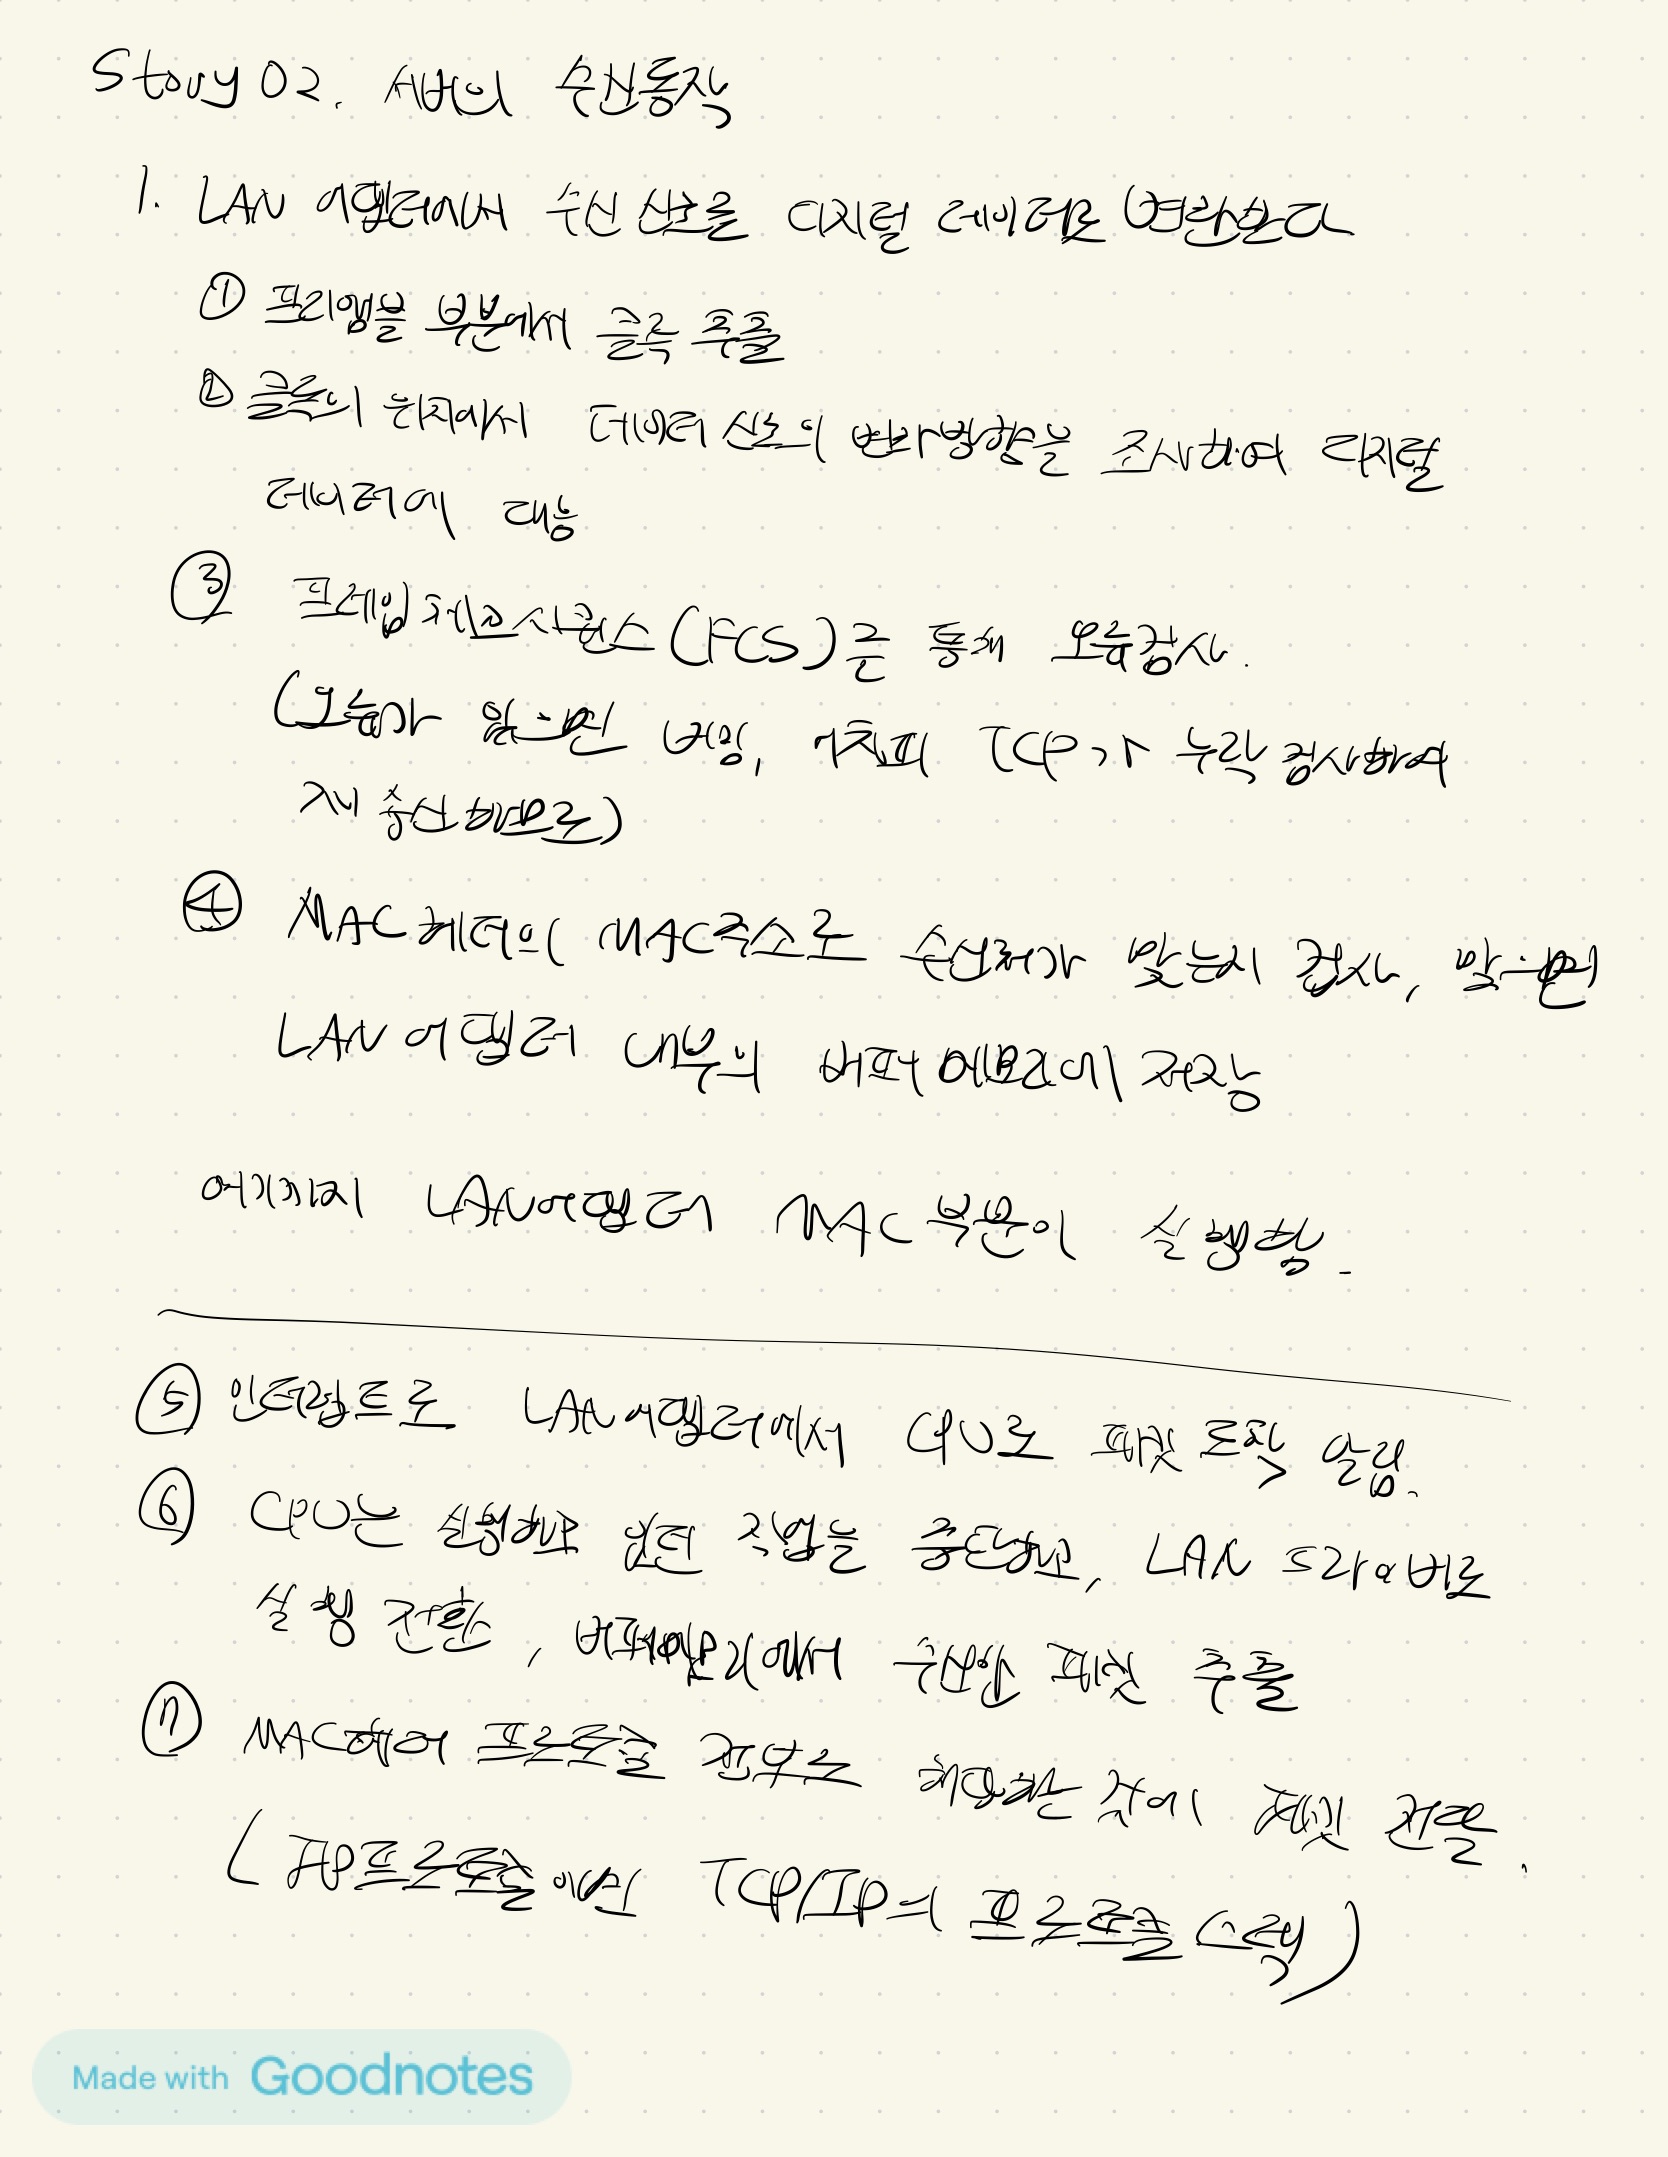 Story 02. 서버의 수신동작
1. LAN 어댑터에서 수신 신호를 디지털 데이터로 변환한다
① 프리앰블 부분에서 클록 추출
② 클록의 위치에서 데이터 신호의 변화방향을 조사하여 디지털
데이터에 대응
③ 프레임 체크 시퀀스 (FCS)를 통해 오류검사.
(오류가 있으면 버림, 어차피 TCP가 누락 검사하여
재 송신하므로)
④ MAC 헤더의 MAC주소로 수신처가 맞는지 검사, 맞으면
LAN 어댑터 내부의 버퍼 메모리에 저장
여기까지 LAN어댑터 MAC 부분이 실행함.
⑤ 인터럽트로 LAN어댑터에서 CPU로 패킷 도착 알림.
⑥ CPU는 실행하고 있던 작업을 중단하고, LAN 드라이버로
실행 전환, 버퍼메모리에서 수신한 패킷 추출
⑦ MAC헤더 프로토콜 해당하는 것에 패킷 전달.
(IP프로토콜이면 TCP/IP의 프로토콜 스택)
Made with Goodnotes